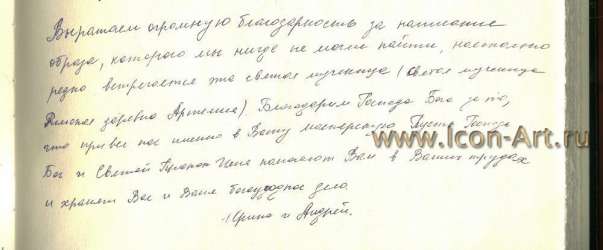 Выражаем огромную благодарность за написание
образа, которого мы нигде не могли найти, настолько
редко встречается эта святая мученица (святая мученица
Римская царевна Артемия). Благодарим Господа Бога за то,
что привел нас именно в Вашу мастерскую. Пусть Господь
Бог и Святой помогают Вам в Ваших трудах
и хранят Вас и Ваше богоугодное дело
Ирина и Андрей.
www.Icon-Art.ru